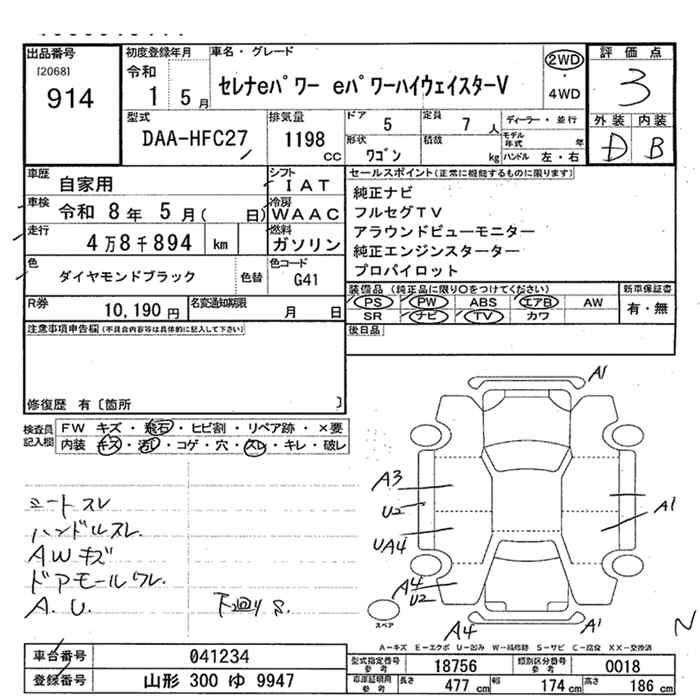 出品番号
[2068]
914
初度登録年月
令和
1 5月
車名・グレード
セレナeパワー eパワーハイウェイスターV
2WD
・
4WD
評価点
3
外装 内装
D B
型式
DAA-HFC27
排気量
1198
cc
ドア
5
定員
7人
形状
ワゴン
積載
kg
ディーラー・並行
モデル年式 年
ハンドル 左・右
車歴
自家用
シフト
IAT
車検
令和 8年 5月( 日)
冷房
WAAC
走行
4万8千894 km
燃料
ガソリン
色
ダイヤモンドブラック
色替
色コード
G41
R券
10,190円
名変通知期限
月 日
セールスポイント(正常に機能するものに限ります)
純正ナビ
フルセグTV
アラウンドビューモニター
純正エンジンスターター
プロパイロット
装備品 (純正品に限り○をつけてください)
新車保証書
PS PW ABS エアB AW
SR ナビ TV カワ
有・無
後日品
注意事項申告欄(不具合内容等は具体的に記入して下さい)
修復歴 有〔箇所 〕
検査員記入欄
FW キズ・飛石・ヒビ割・リペア跡・×要
内装 キズ・汚レ・コゲ・穴・スレ・キレ・破レ
シートスレ
ハンドルスレ.
AWキズ
ドアモールワレ.
A. U.
下回り S.
A1
A3
U2
UA4
A4
U2
A4
A1
A1
スペア
N
A-キズ E-エクボ U-凹み W-補修跡 S-サビ C-腐食 XX-交換済
車台番号
041234
登録番号
山形 300 ゆ 9947
型式指定番号
参考
18756
類別区分番号
参考
0018
車庫証明用
参考
長さ 477cm
幅 174cm
高さ 186cm